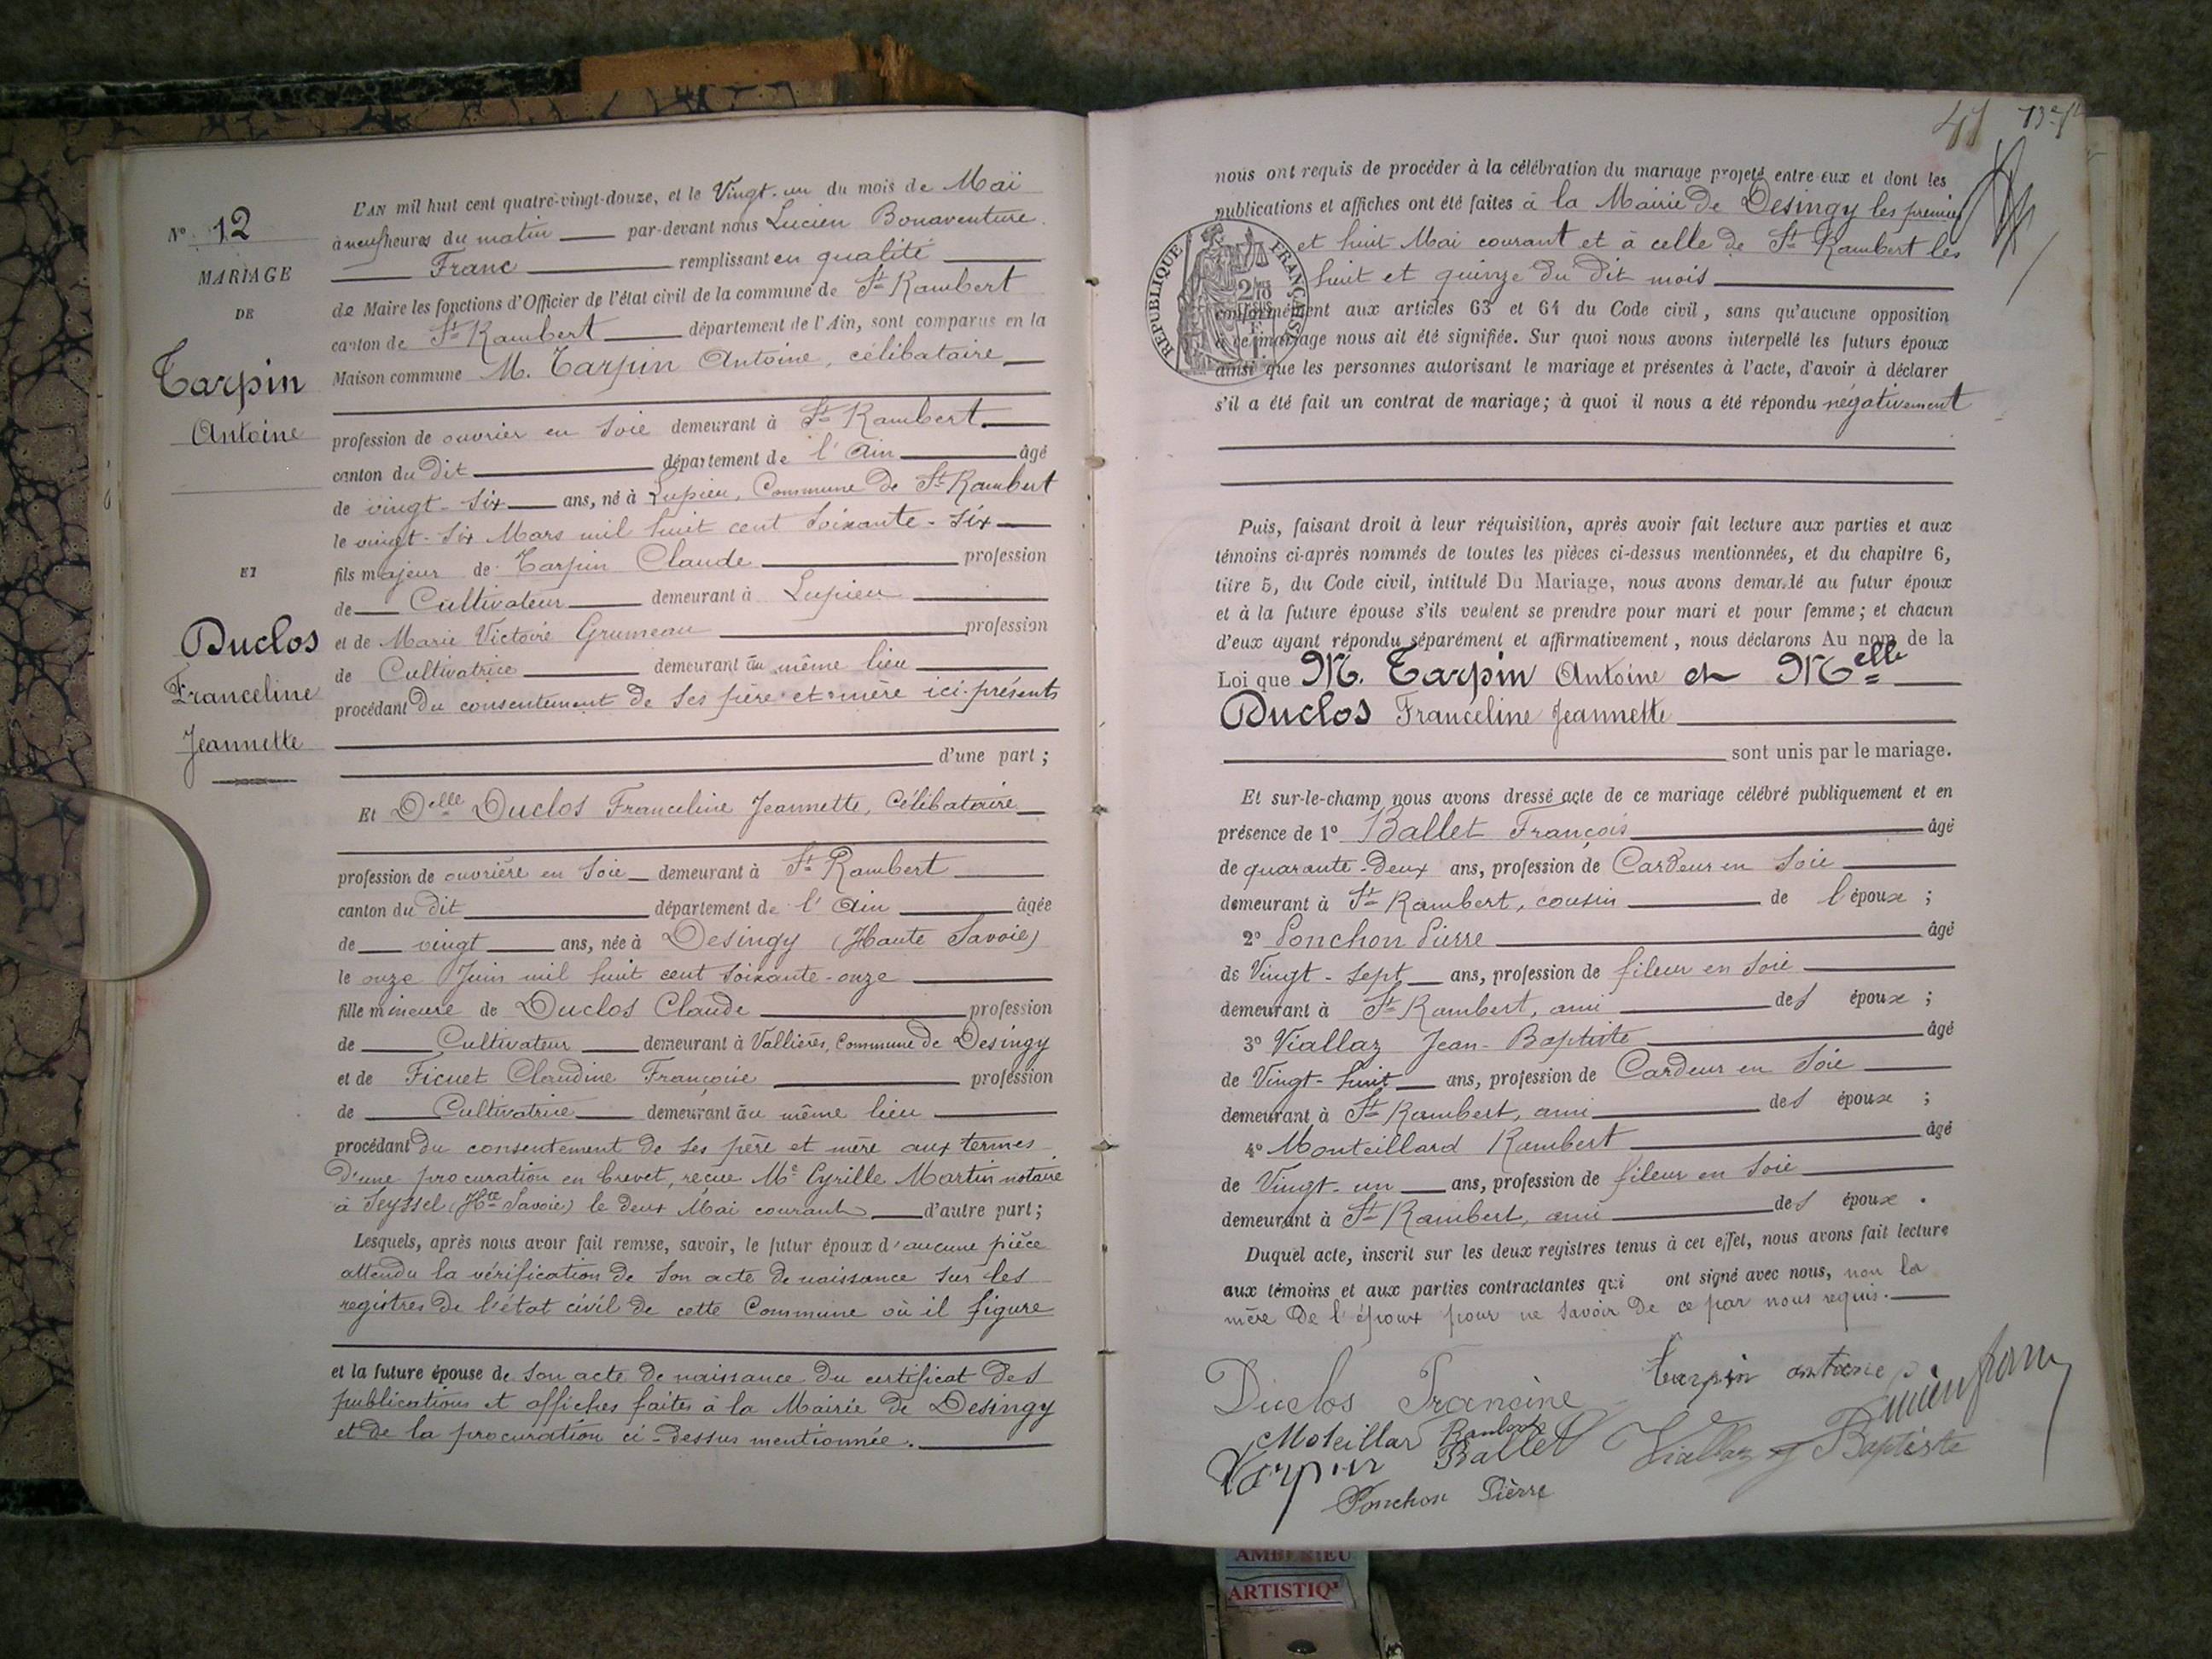 N° 12
MARIAGE
DE
Tarpin
Antoine
ET
Duclos
Franceline
Jeannette
L'AN mil huit cent quatre-vingt-douze, et le Vingt-un du mois de Maï
à neuf heures du matin par-devant nous Lucien Bonaventure
Franc remplissant en qualité
de Maire les fonctions d'Officier de l'état civil de la commune de St Rambert
canton de St Rambert département de l'Ain, sont comparus en la
Maison commune M. Tarpin Antoine, célibataire
profession de ouvrier en soie demeurant à St Rambert
canton du dit département de l'Ain âgé
de vingt-six ans, né à Lupieu, Commune de St Rambert
le vingt-six Mars mil huit cent soixante-six
fils majeur de Tarpin Claude profession
de Cultivateur demeurant à Lupieu
et de Marie Victoire Grumeau profession
de Cultivatrice demeurant au même lieu
procédant du consentement de ses père et mère ici présents
d'une part ;
Et Delle Duclos Franceline Jeannette, Célibataire
profession de ouvrière en soie demeurant à St Rambert
canton du dit département de l'Ain âgée
de vingt ans, née à Desingy (Haute Savoie)
le onze Juin mil huit cent soixante-onze
fille mineure de Duclos Claude profession
de Cultivateur demeurant à Vallières, Commune de Desingy
et de Ficuet Claudine Françoise profession
de Cultivatrice demeurant au même lieu
procédant du consentement de ses père et mère aux termes
d'une procuration en brevet, reçue Me Cyrille Martin notaire
à Seyssel (Hte Savoie) le deux Mai courant d'autre part ;
Lesquels, après nous avoir fait remise, savoir, le futur époux d'aucune pièce
attendu la vérification de son acte de naissance sur les
registres de l'état civil de cette Commune où il figure
et la future épouse de son acte de naissance du certificat des
publications et affiches faites à la Mairie de Desingy
et de la procuration ci-dessus mentionnée.
41
nous ont requis de procéder à la célébration du mariage projeté entre eux et dont les
publications et affiches ont été faites à la Mairie de Desingy les premier
et huit Mai courant et à celle de St Rambert les
huit et quinze du dit mois
RÉPUBLIQUE FRANÇAISE
conformément aux articles 63 et 64 du Code civil, sans qu'aucune opposition
à ce mariage nous ait été signifiée. Sur quoi nous avons interpellé les futurs époux
ainsi que les personnes autorisant le mariage et présentes à l'acte, d'avoir à déclarer
s'il a été fait un contrat de mariage ; à quoi il nous a été répondu négativement
Puis, faisant droit à leur réquisition, après avoir fait lecture aux parties et aux
témoins ci-après nommés de toutes les pièces ci-dessus mentionnées, et du chapitre 6,
titre 5, du Code civil, intitulé Du Mariage, nous avons demandé au futur époux
et à la future épouse s'ils veulent se prendre pour mari et pour femme ; et chacun
d'eux ayant répondu séparément et affirmativement, nous déclarons Au nom de la
Loi que M. Tarpin Antoine et Melle
Duclos Franceline Jeannette
sont unis par le mariage.
Et sur-le-champ nous avons dressé acte de ce mariage célébré publiquement et en
présence de 1° Ballet François âgé
de quarante-deux ans, profession de Cardeur en soie
demeurant à St Rambert, cousin de l'époux ;
2° Ponchon Pierre âgé
de Vingt-sept ans, profession de fileur en soie
demeurant à St Rambert, ami des époux ;
3° Viallaz Jean-Baptiste âgé
de Vingt-huit ans, profession de Cardeur en soie
demeurant à St Rambert, ami des époux ;
4° Monteillard Rambert âgé
de Vingt-un ans, profession de fileur en soie
demeurant à St Rambert, ami des époux.
Duquel acte, inscrit sur les deux registres tenus à cet effet, nous avons fait lecture
aux témoins et aux parties contractantes qui ont signé avec nous, non la
mère de l'époux pour ne savoir de ce par nous requis.
Duclos Francine
Tarpin antoine
Moteillar
Ballet
Viallaz J Baptiste
Tarpin
Ponchon Pièrre
AMBERIEU
ARTISTIQ